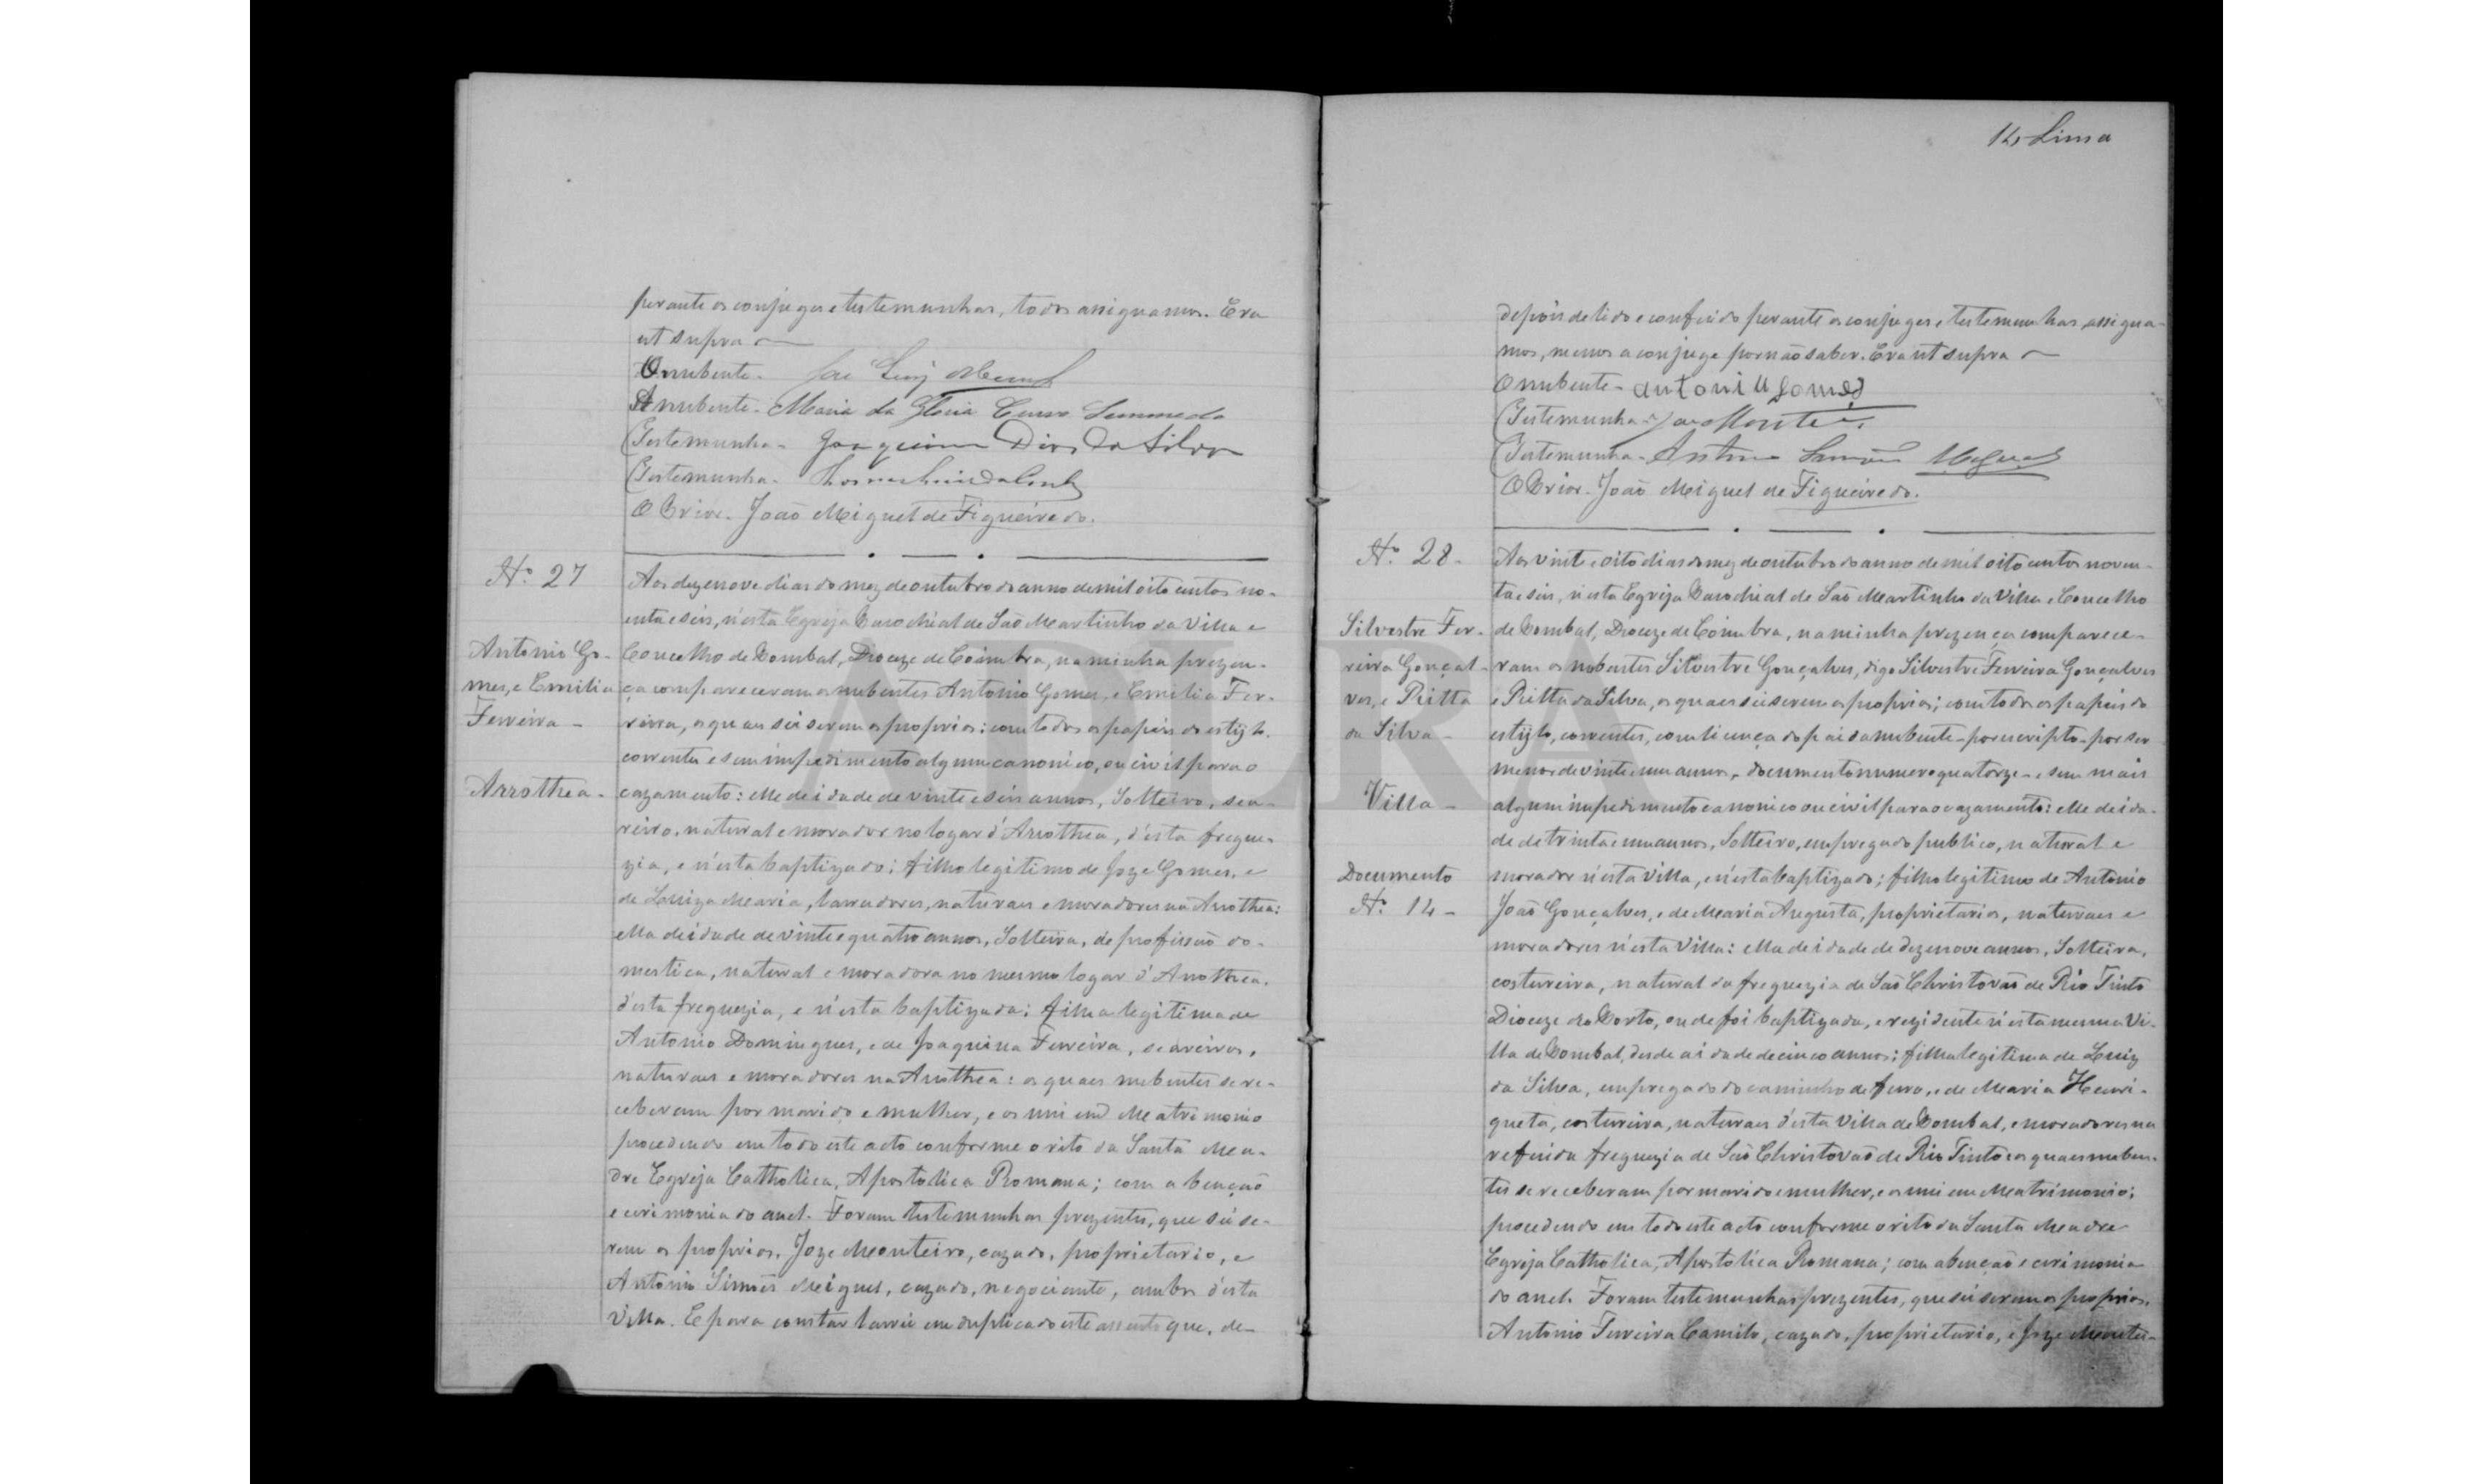 perante os conjuges e testemunhas, todos assignamos. Era
ut supra
O nubente - José Luiz
A nubente - Maria da Gloria Curvo Semmedo
Testemunha - Joaquim Dias da Silva
Testemunha -
O Prior - João Miguel de Figueiredo.
Nº 27
Antonio Go-
mes, e Emilia
Ferreira -
Arrothea -
Aos dezenove dias do mez de outubro do anno de mil oito centos no-
enta e seis, n'esta Egreja Parochial de São Martinho da Villa e
Concelho de Pombal, Dioceze de Coimbra, na minha prezen-
ça compareceram os nubentes Antonio Gomes, e Emilia Fer-
reira, os quaes sei serem os proprios: com todos os papeis do estylo.
correntes e sem impedimento algum canonico, ou civil para o
cazamento: elle de idade de vinte e seis annos, Solteiro, sea-
reiro, natural e morador no logar d'Arrothea, d'esta fregue-
zia, e n'esta baptizado; filho legitimo de Joze Gomes, e
de Luiza Maria, lavradores, naturaes e moradores na Arrothea:
ella de idade de vinte e quatro annos, Solteira, de profissão do-
mestica, natural e moradora no mesmo logar d'Arrothea,
d'esta freguezia, e n'esta baptizada; filha legitima de
Antonio Domingues, e de Joaquina Ferreira, seareiros,
naturaes e moradores na Arrothea: os quaes nubentes se re-
ceberam por marido e mulher, e os uni em Matrimonio
procedendo em todo este acto conforme o rito da Santa Ma-
dre Egreja Catholica, Apostolica Romana; com a benção
e cerimonia do anel. Foram testemunhas prezentes, que sei se-
rem os proprios, Joze Monteiro, cazado, proprietario, e
Antonio Simões Miguel, cazado, negociante, ambos d'esta
Villa. E para constar lavrei em duplicado este assento que, de-
14 Lima
depois de lido e conferido perante os conjuges e testemunhas, assigna-
mos, menos a conjuge por não saber. Era ut supra
O nubente - antonio Gomes
Testemunha - José Monteiro
Testemunha - Antonio Simões Miguel
O Prior - João Miguel de Figueiredo.
Nº 28 -
Silvestre Fer-
reira Gonçal-
ves, e Ritta
da Silva -
Villa -
Documento
Nº 14 -
Aos vinte e oito dias do mez de outubro do anno de mil oito centos noven-
ta e seis, n'esta Egreja Parochial de São Martinho da Villa e Concelho
de Pombal, Dioceze de Coimbra, na minha prezença comparece-
ram os nubentes Silvestre Gonçalves, digo Silvestre Ferreira Gonçalves
e Ritta da Silva, os quaes sei serem os proprios; com todos os papeis do
estylo, correntes, com licença do pai da nubente - por escripto - por ser
menor de vinte e um annos, - documento numero quatorze - e sem mais
algum impedimento canonico ou civil para o cazamento: elle de ida-
de de trinta e um annos, Solteiro, empregado publico, natural e
morador n'esta Villa, e n'esta baptizado; filho legitimo de Antonio
João Gonçalves, e de Maria Augusta, proprietarios, naturaes e
moradores n'esta Villa: ella de idade de dezenove annos, Solteira,
costureira, natural da freguezia de São Christovão de Rio Tinto
Dioceze do Porto, onde foi baptizada, e rezidente n'esta mesma Vi-
lla de Pombal, desde a idade de cinco annos; filha legitima de Luiz
da Silva, empregado do caminho de ferro, e de Maria Henri-
queta, costureira, naturaes d'esta Villa de Pombal, e moradores na
referida freguezia de São Christovão de Rio Tinto: os quaes nuben-
tes se receberam por marido e mulher, e os uni em Matrimonio;
procedendo em todo este acto conforme o rito da Santa Madre
Egreja Catholica, Apostolica Romana; com a benção e cerimonia
do anel. Foram testemunhas prezentes, que sei serem os proprios,
Antonio Ferreira Camilo, cazado, proprietario, e Joze Montei-
ADLRA